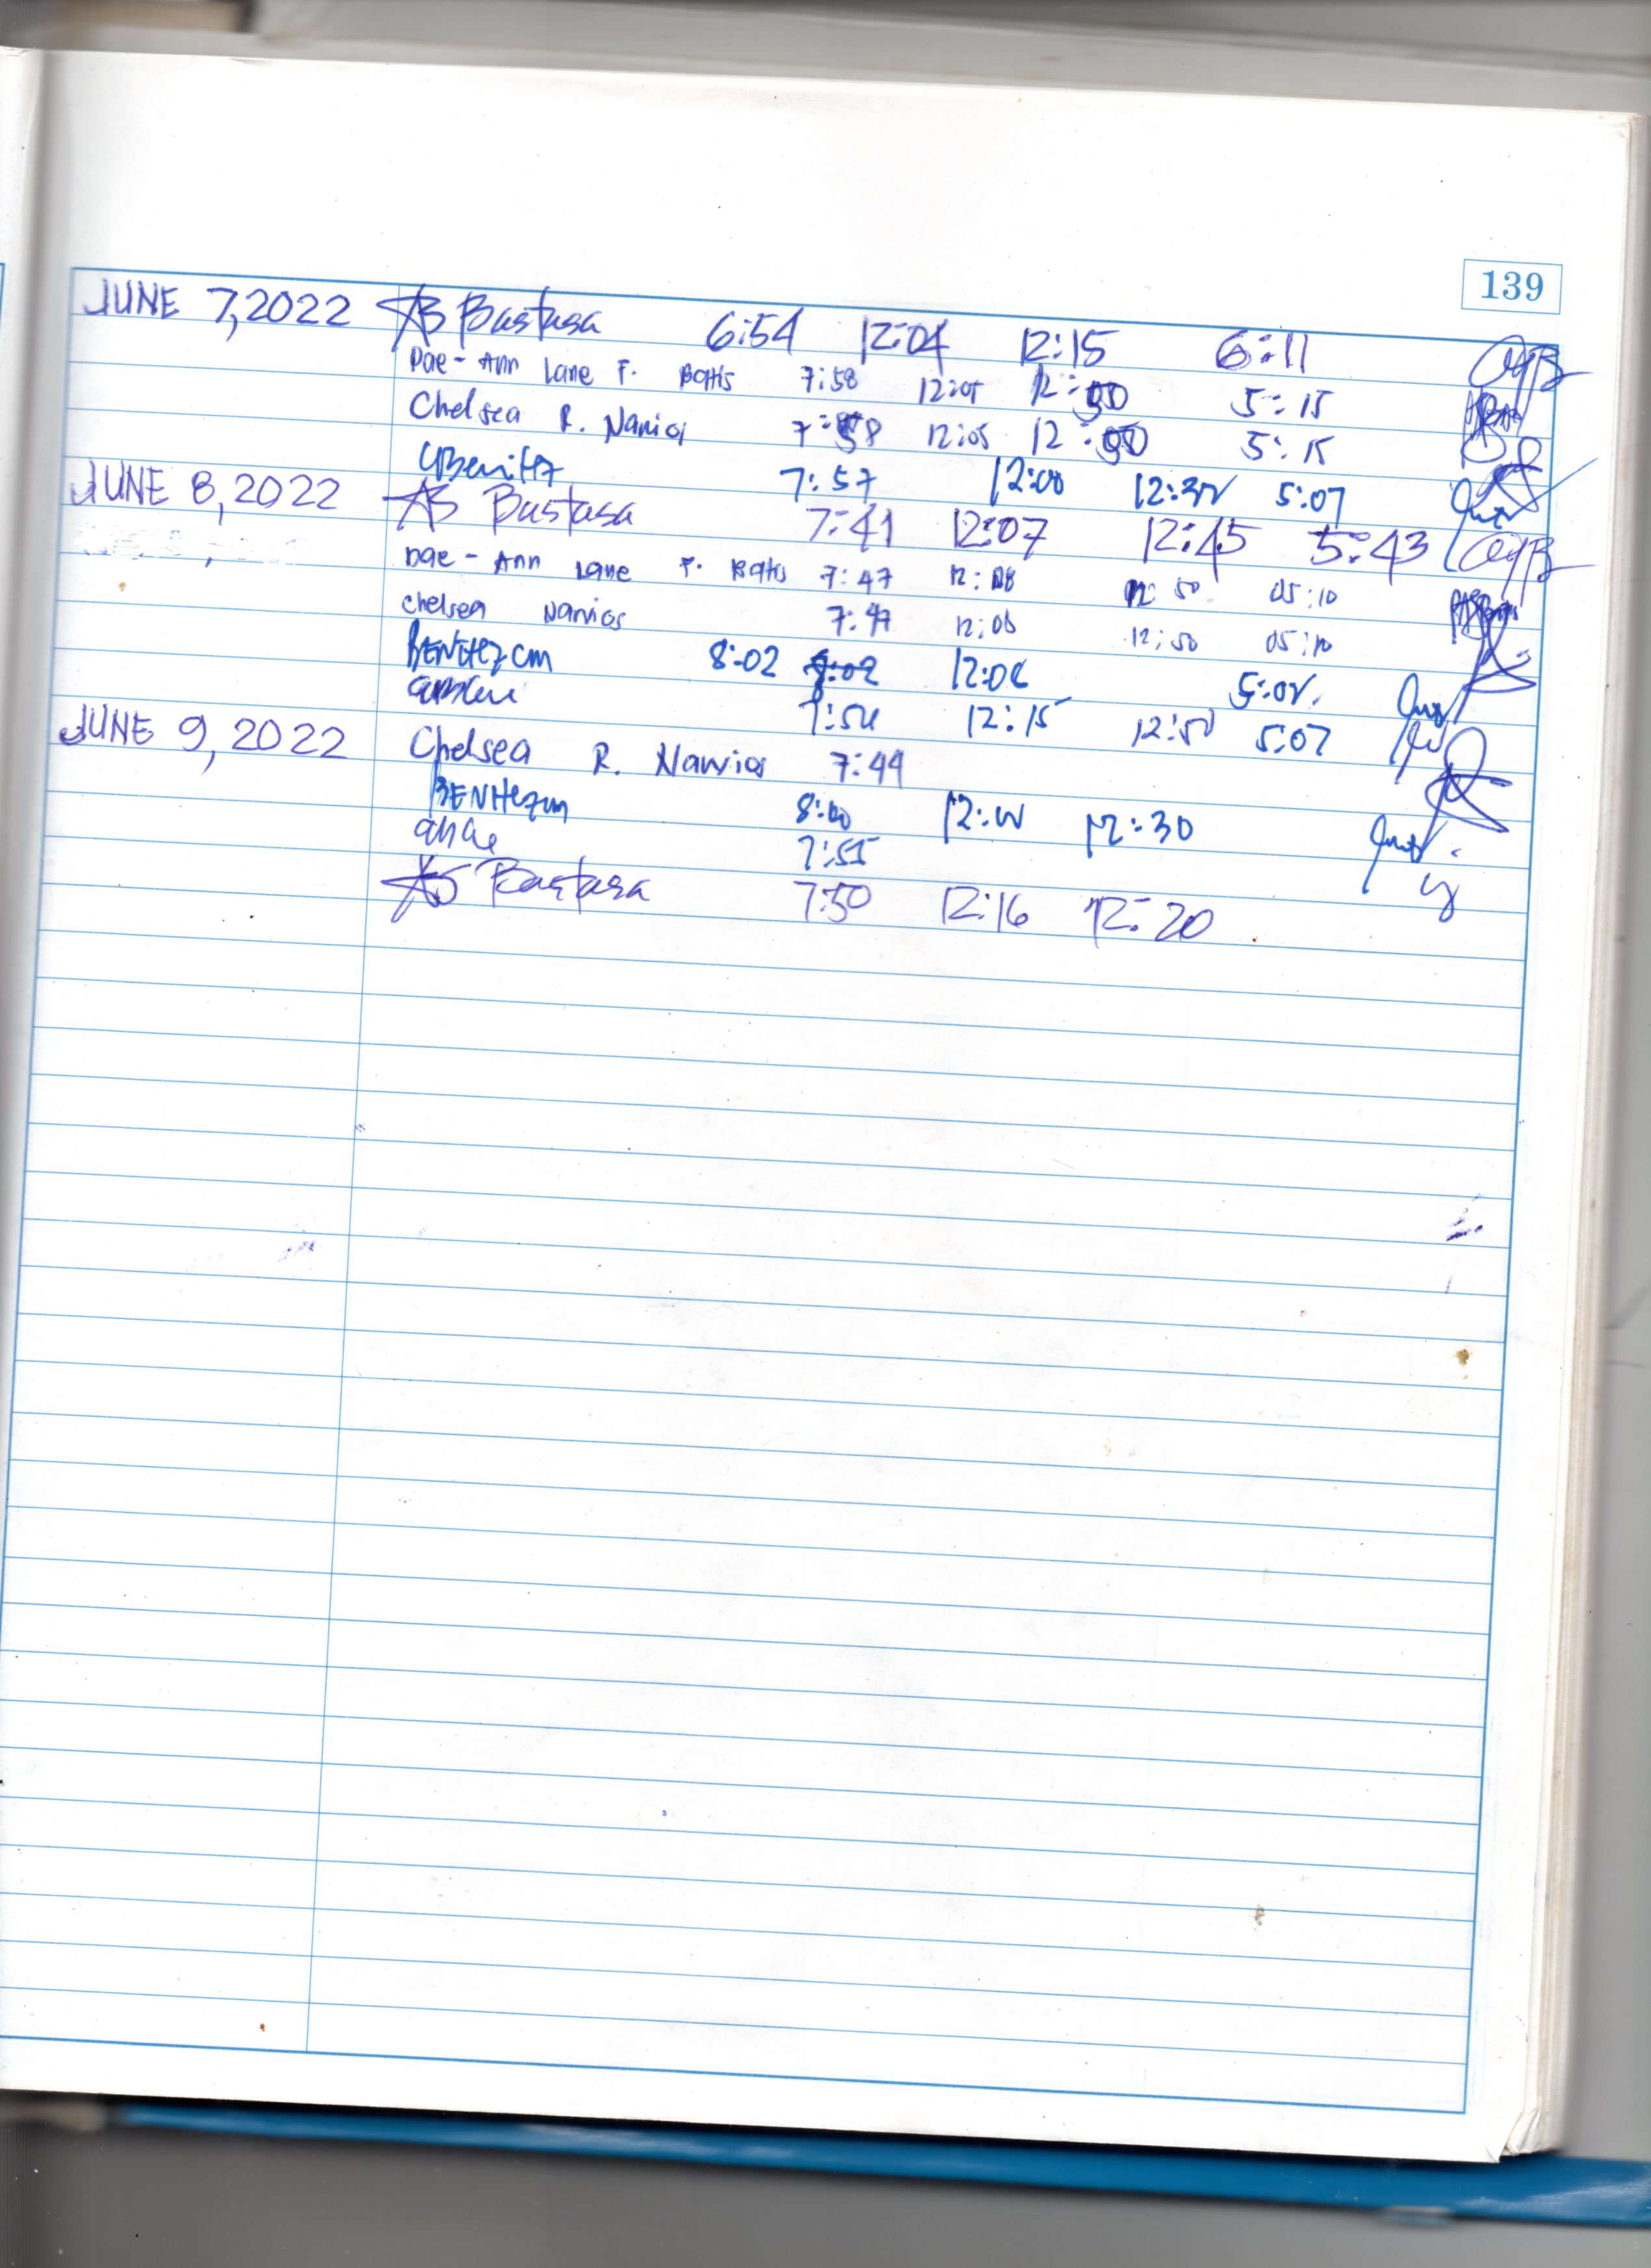 139
JUNE 7, 2022 AB Bastasa 6:54 12:04 12:15 6:11
Dae-Ann Lane F. Batis 7:58 12:05 12:50 5:15
Chelsea R. Narrios 7:58 12:05 12:50 5:15
CBenitez 7:57 12:00 5:07
JUNE 8, 2022 AB Bastasa 7:41 12:07 12:45 5:43
Dae-Ann Lane F. Batis 7:47 12:08 12:50 05:10
Chelsea Narrios 7:47 12:08 12:50 05:10
BENITEZ CM 8:02 8:02 12:06
12:15 12:50 5:07
JUNE 9, 2022 Chelsea R. Narrios 7:44
BENITEZ CM 8:00 12:00 12:30
7:55
AB Bastasa 7:50 12:16 12:20